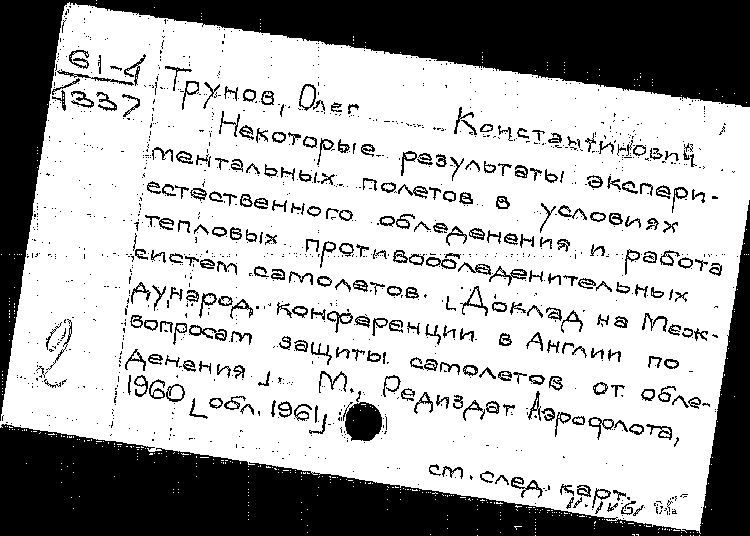 61-4
1337
Трунов, Олег Константинович
Некоторые результаты экспери-
ментальных полетов в условиях
естественного обледенения и работа
тепловых противообледенительных
систем самолетов. [Доклад на Меж-
дународ. конференции в Англии по
вопросам защиты самолетов от обле-
денения]. М., Редиздат Аэрофлота,
1960 [обл. 1961]
см. след. карт.
2